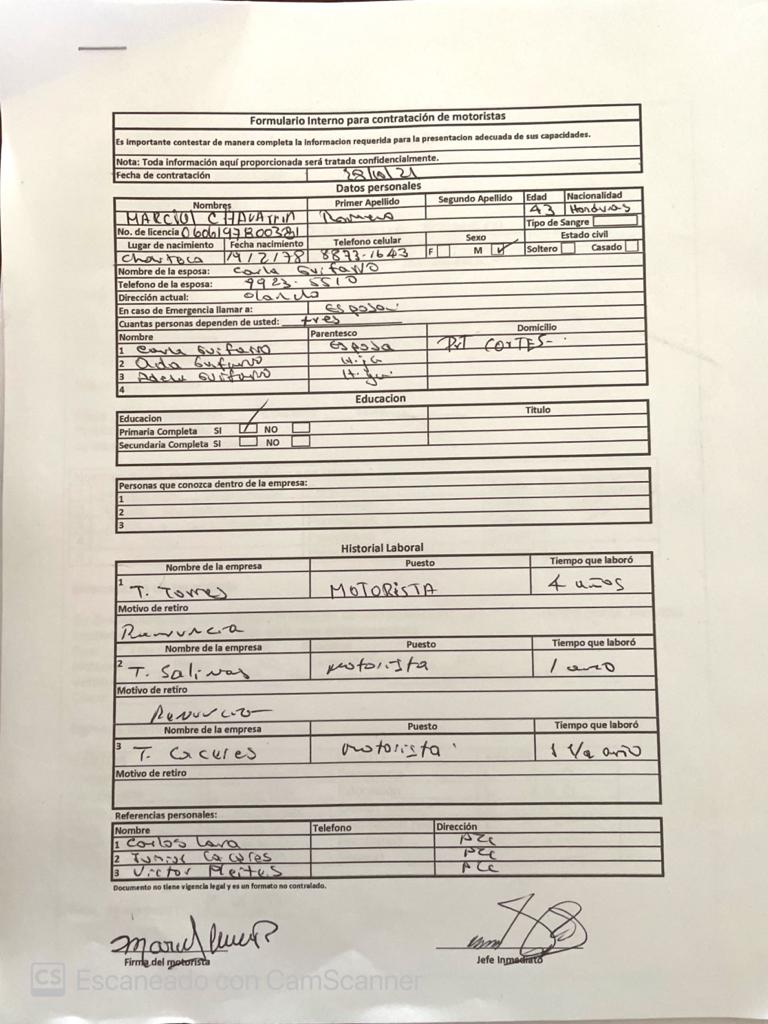 Formulario Interno para contratación de motoristas
Es importante contestar de manera completa la informacion requerida para la presentacion adecuada de sus capacidades.
Nota: Toda información aquí proporcionada será tratada confidencialmente.
Fecha de contratación
Datos personales
Nombres Primer Apellido Segundo Apellido Edad Nacionalidad
MARCIAL CHAVARRIA Romero 43 Honduras
No. de licencia Tipo de Sangre
Lugar de nacimiento Fecha nacimiento Telefono celular Sexo Estado civil
19/2/78 8873-1643 F M ✓ Soltero Casado
Nombre de la esposa: Carla Guifarro
Telefono de la esposa: 9923-5510
Dirección actual:
En caso de Emergencia llamar a: Esposa
Cuantas personas dependen de usted: tres
Nombre Parentesco Domicilio
1 Carla Guifarro Esposa CORTES
2 Guifarro Hija
3 Guifarro Hija
4
Educacion
Educacion Titulo
Primaria Completa SI ✓ NO
Secundaria Completa SI NO
Personas que conozca dentro de la empresa:
1
2
3
Historial Laboral
Nombre de la empresa Puesto Tiempo que laboró
1 T. Torres MOTORISTA 4 años
Motivo de retiro
Renuncia
Nombre de la empresa Puesto Tiempo que laboró
2 T. Salinas motorista 1 año
Motivo de retiro
Renuncia
Nombre de la empresa Puesto Tiempo que laboró
3 T. Caceres motorista año
Motivo de retiro
Referencias personales:
Nombre Telefono Dirección
1 Carlos Lara
2 Junior Caceres
3 Victor
Documento no tiene vigencia legal y es un formato no controlado.
Firma del motorista Jefe Inmediato
CS Escaneado con CamScanner